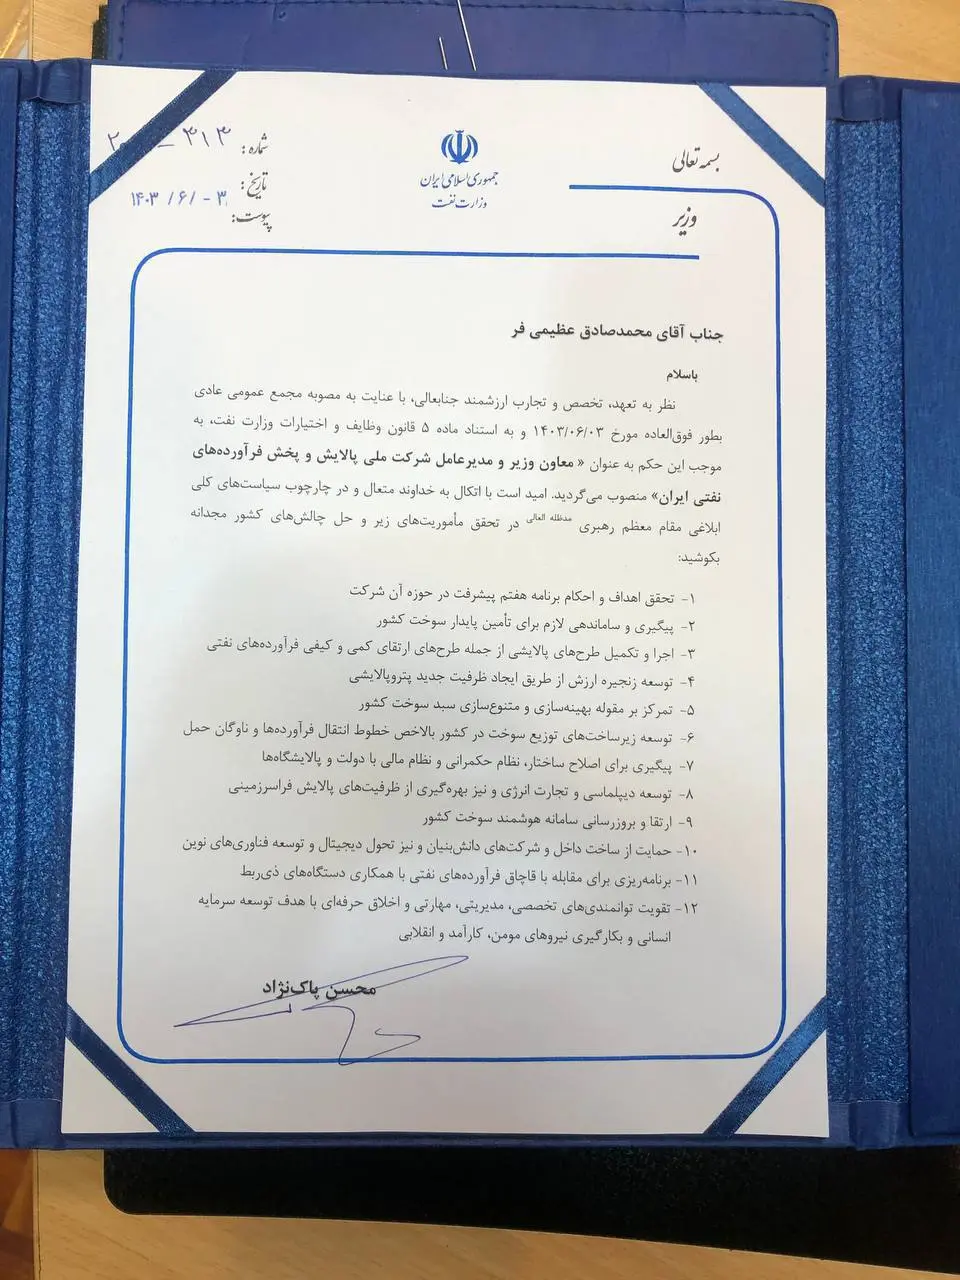 بسمه تعالی
جمهوری اسلامی ایران
وزارت نفت
وزیر
شماره:
تاریخ: ۱۴۰۳ / ۶ / - ۳
پیوست:
جناب آقای محمدصادق عظیمی فر
باسلام
نظر به تعهد، تخصص و تجارب ارزشمند جنابعالی، با عنایت به مصوبه مجمع عمومی عادی
بطور فوق‌العاده مورخ ۱۴۰۳/۰۶/۰۳ و به استناد ماده ۵ قانون وظایف و اختیارات وزارت نفت، به
موجب این حکم به عنوان « معاون وزیر و مدیرعامل شرکت ملی پالایش و پخش فرآورده‌های
نفتی ایران» منصوب می‌گردید. امید است با اتکال به خداوند متعال و در چارچوب سیاست‌های کلی
ابلاغی مقام معظم رهبری مدظله العالی در تحقق مأموریت‌های زیر و حل چالش‌های کشور مجدانه
بکوشید:
۱- تحقق اهداف و احکام برنامه هفتم پیشرفت در حوزه آن شرکت
۲- پیگیری و ساماندهی لازم برای تأمین پایدار سوخت کشور
۳- اجرا و تکمیل طرح‌های پالایشی از جمله طرح‌های ارتقای کمی و کیفی فرآورده‌های نفتی
۴- توسعه زنجیره ارزش از طریق ایجاد ظرفیت جدید پتروپالایشی
۵- تمرکز بر مقوله بهینه‌سازی و متنوع‌سازی سبد سوخت کشور
۶- توسعه زیرساخت‌های توزیع سوخت در کشور بالاخص خطوط انتقال فرآورده‌ها و ناوگان حمل
۷- پیگیری برای اصلاح ساختار، نظام حکمرانی و نظام مالی با دولت و پالایشگاه‌ها
۸- توسعه دیپلماسی و تجارت انرژی و نیز بهره‌گیری از ظرفیت‌های پالایش فراسرزمینی
۹- ارتقا و بروزرسانی سامانه هوشمند سوخت کشور
۱۰- حمایت از ساخت داخل و شرکت‌های دانش‌بنیان و نیز تحول دیجیتال و توسعه فناوری‌های نوین
۱۱- برنامه‌ریزی برای مقابله با قاچاق فرآورده‌های نفتی با همکاری دستگاه‌های ذی‌ربط
۱۲- تقویت توانمندی‌های تخصصی، مدیریتی، مهارتی و اخلاق حرفه‌ای با هدف توسعه سرمایه
انسانی و بکارگیری نیروهای مومن، کارآمد و انقلابی
محسن پاک‌نژاد